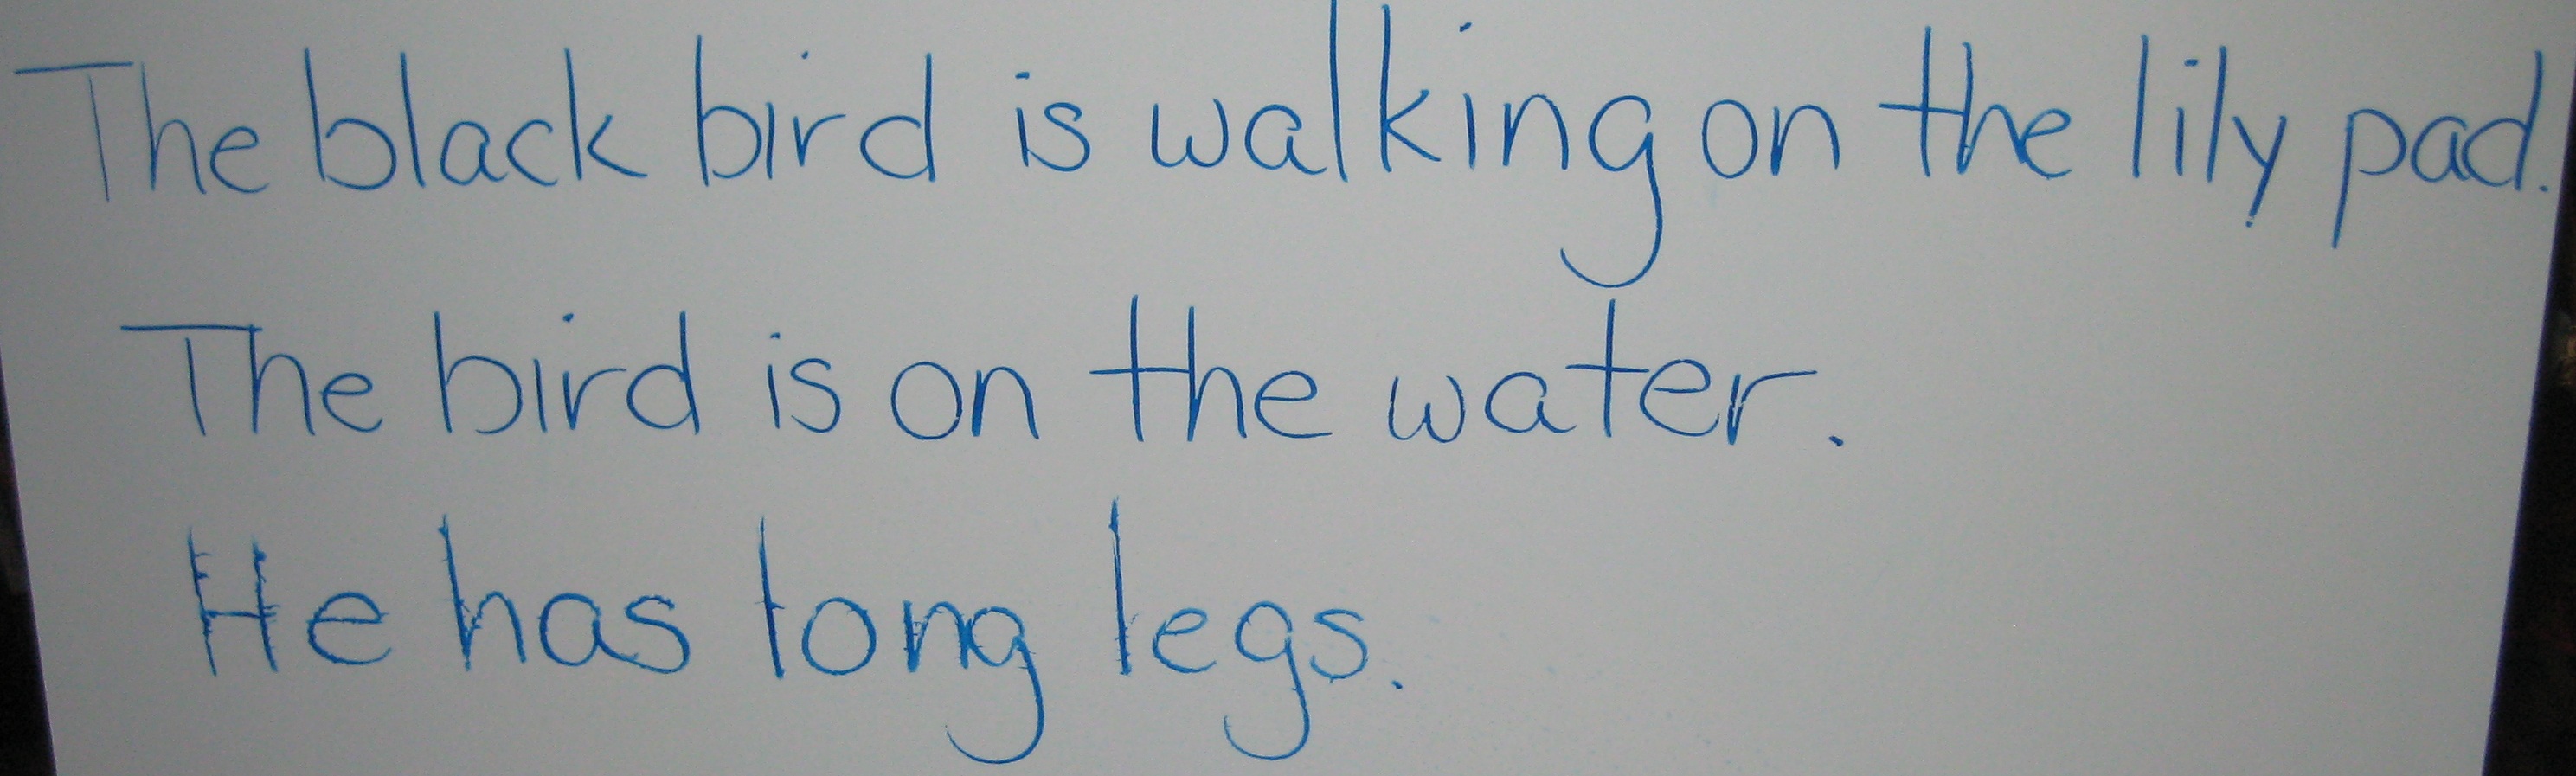 The black bird is walking on the lily pad.
The bird is on the water.
He has long legs.